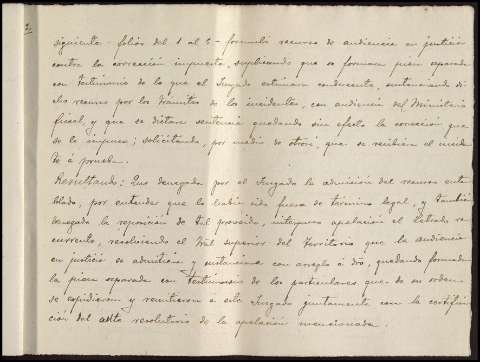 siguiente - folios del 1 al 6 - formuló recurso de audiencia en justicia
contra la corrección impuesta, suplicando que se formara pieza separada
con testimonio de lo que el Juzgado estimara conducente, sustanciando di-
cho recurso por los trámites de los incidentes, con audiencia del Ministerio
fiscal, y que se dictara sentencia quedando sin efecto la corrección que
se le impuso; solicitando, por medio de otrosí, que se recibiera el inciden-
te á prueba.
Resultando: Que denegada por el Juzgado la admisión del recurso enta-
blado, por entender que lo había sido fuera de término legal, y también
denegada la reposición de tal proveído, interpuso apelación el Letrado re-
currente, resolviendo el Tral superior del Territorio que la audiencia
en justicia se admitiera y sustanciara con arreglo á dro, quedando formada
la pieza separada con testimonios de los particulares que de su orden
se expidieron y remitieron á este Juzgado juntamente con la certifica-
ción del auto resolutorio de la apelación mencionada.